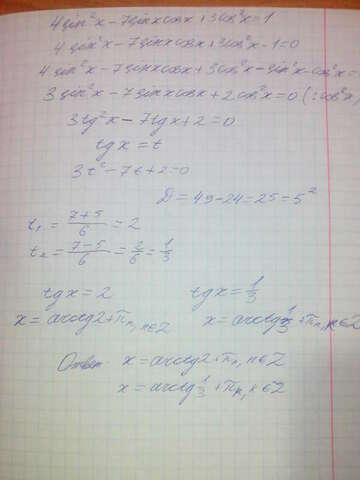 4sin²x - 7sinxcosx + 3cos²x = 1
4sin²x - 7sinxcosx + 3cos²x - 1 = 0
4sin²x - 7sinxcosx + 3cos²x - sin²x - cos²x =
3sin²x - 7sinxcosx + 2cos²x = 0 (:cos²x
3tg²x - 7tgx + 2 = 0
tgx = t
3t² - 7t + 2 = 0
D = 49 - 24 = 25 = 5²
t₁ = (7+5)/6 = 2
t₂ = (7-5)/6 = 2/6 = 1/3
tgx = 2 tgx = 1/3
x = arctg2 + πn, n∈Z x = arctg 1/3 + πn, n∈Z
Ответ: x = arctg2 + πn, n∈Z
x = arctg 1/3 + πn, n∈Z